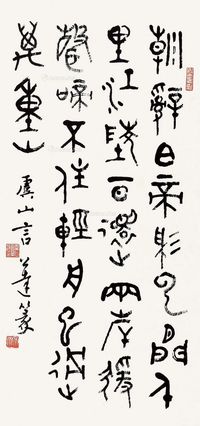 朝辭白帝彩雲間千
里江陵一日還兩岸猿
聲啼不住輕舟已過
萬重山
虞山言公達篆